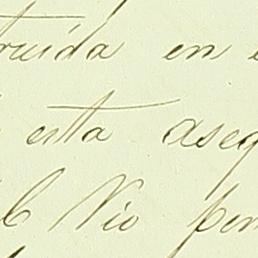 truida en
esta aseg
Nio per